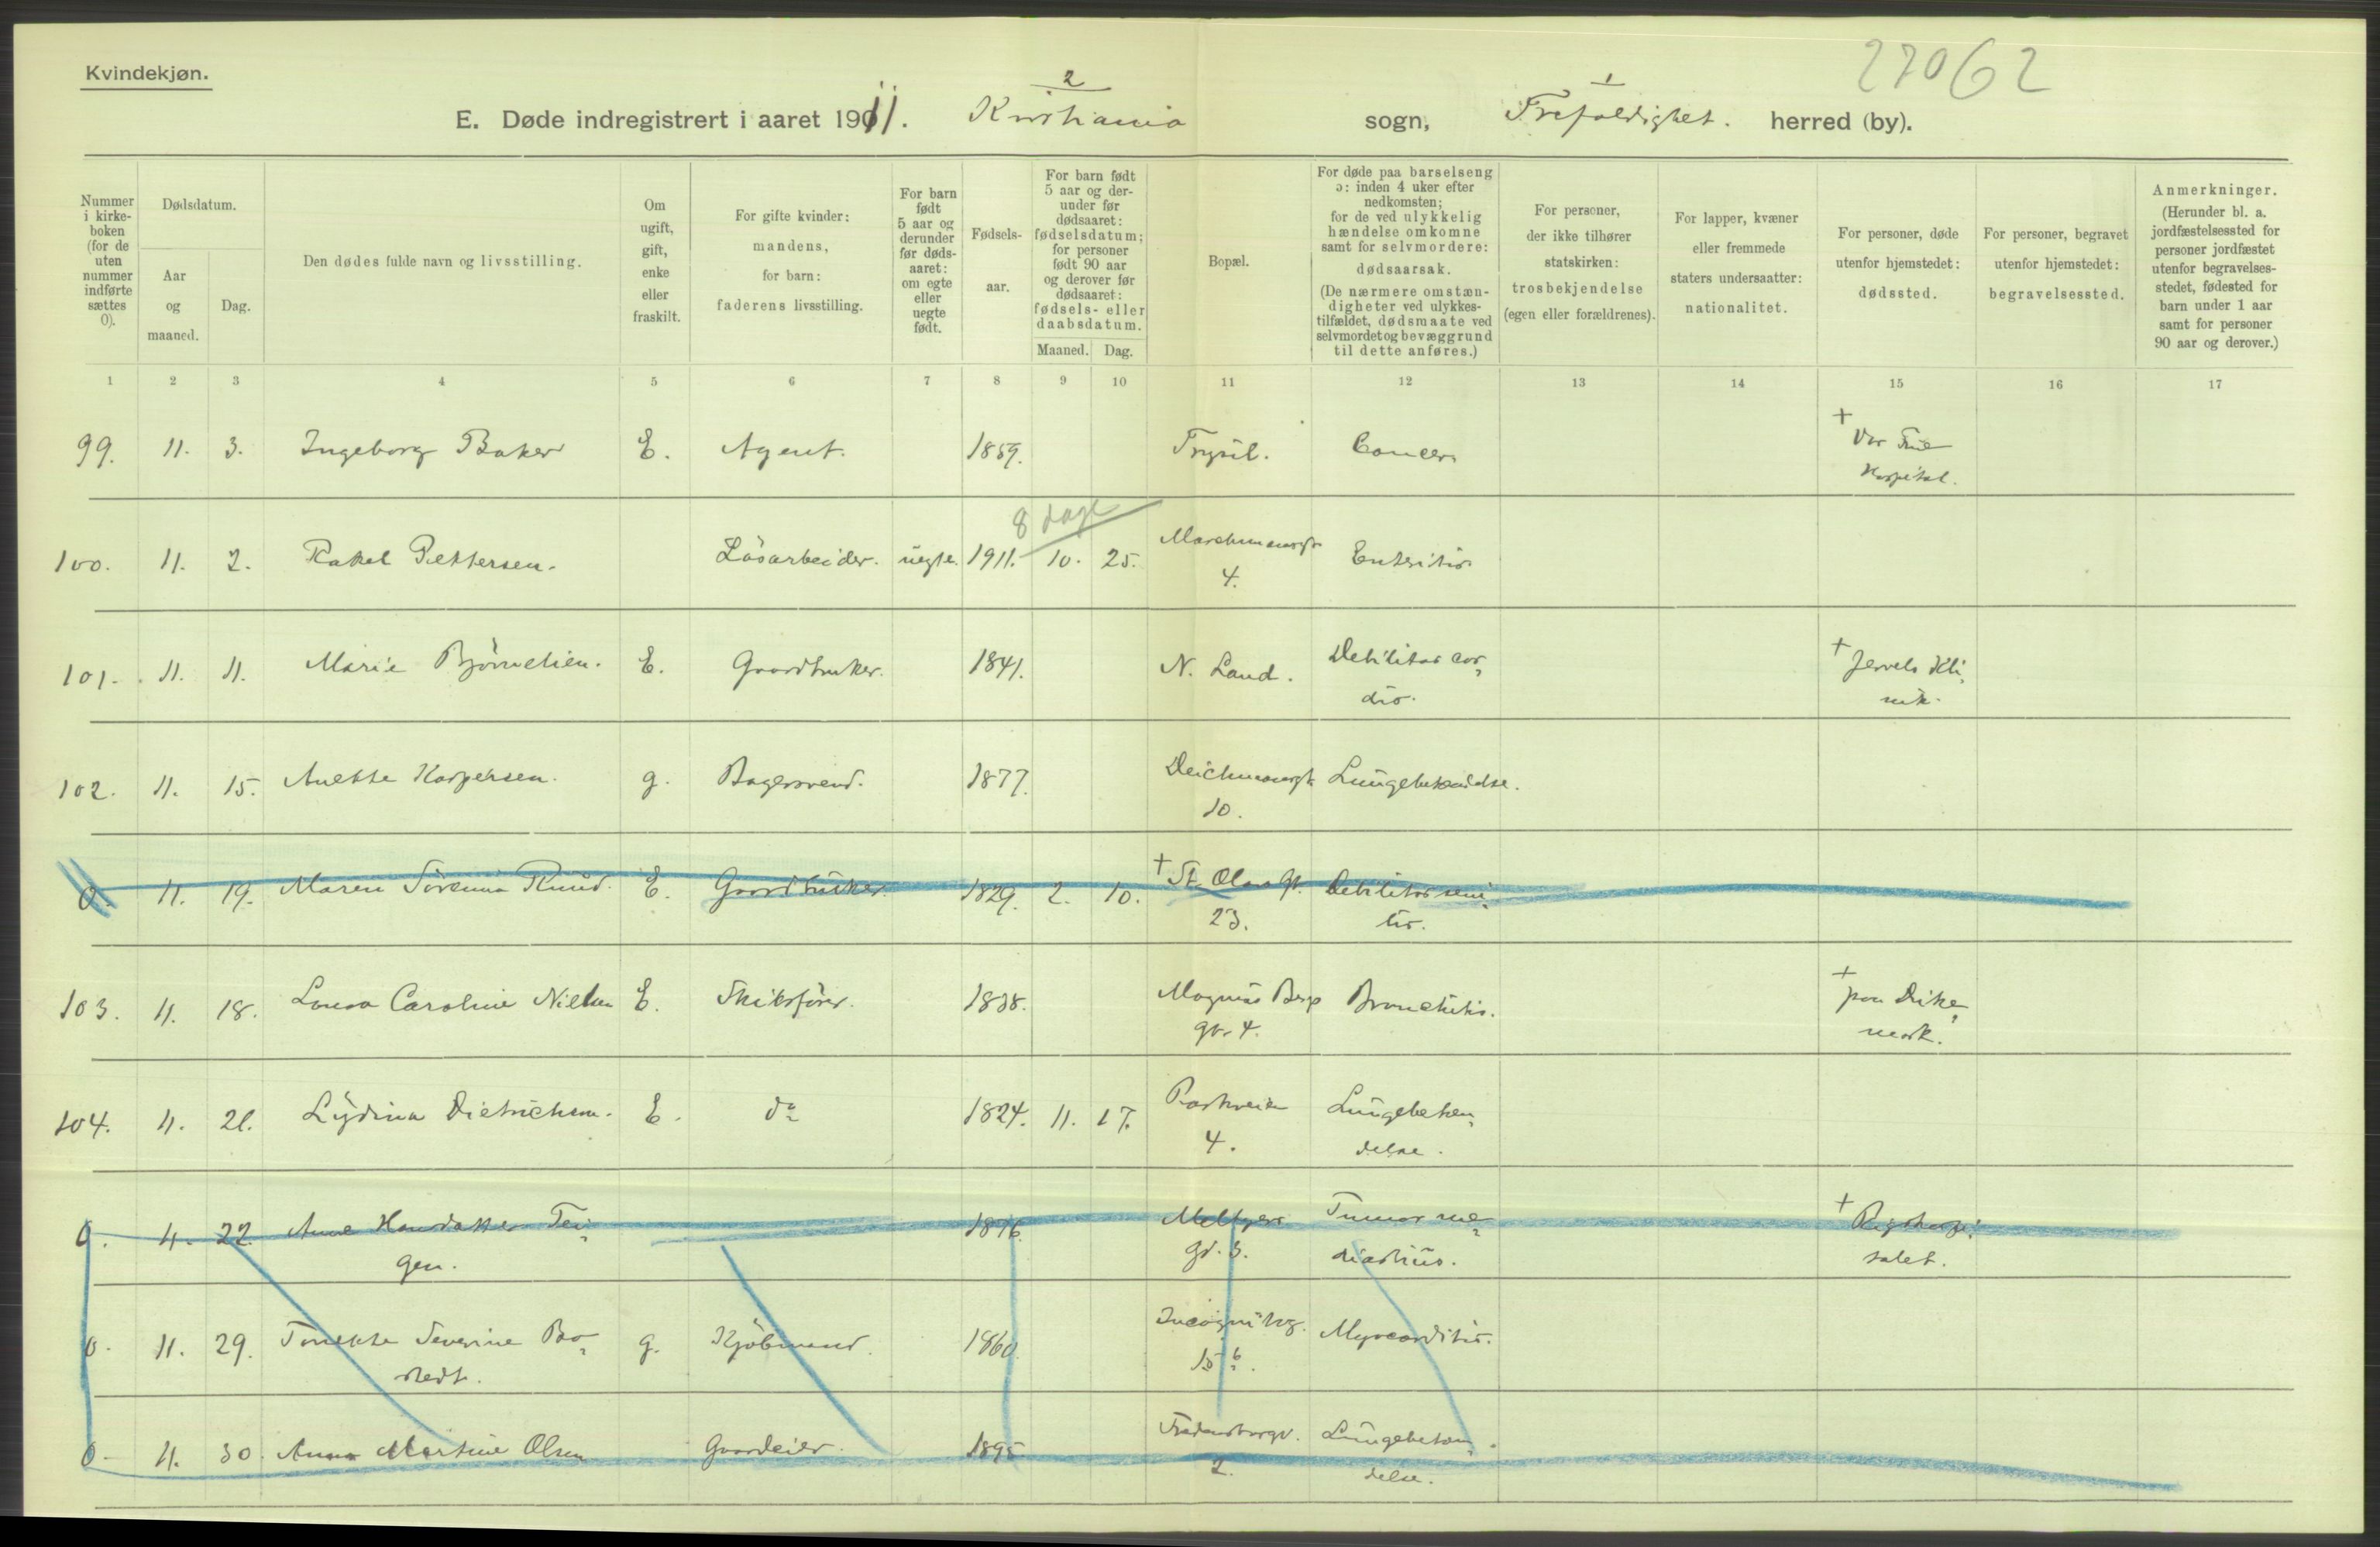 Kvindekjøn.
27062
2
1
E. Døde indregistrert i aaret 1911. Kristiania sogn, Trefoldighet. herred (by).
Nummer i kirke-boken (for de uten nummer indførte sættes 0).
Dødsdatum.
Aar og maaned.
Dag.
Den dødes fulde navn og livsstilling.
Om ugift, gift, enke eller fraskilt.
For gifte kvinder: mandens, for barn: faderens livsstilling.
For barn født 5 aar og derunder før døds-aaret: om egte eller uegte født.
Fødsels-aar.
For barn født 5 aar og der-under før dødsaaret: fødselsdatum; for personer født 90 aar og derover før dødsaaret: fødsels- eller daabsdatum.
Maaned. Dag.
Bopæl.
For døde paa barselseng ɔ: inden 4 uker efter nedkomsten; for de ved ulykkelig hændelse omkomne samt for selvmordere: dødsaarsak. (De nærmere omstæn-digheter ved ulykkes-tilfældet, dødsmaate ved selvmordet og bevæggrund til dette anføres.)
For personer, der ikke tilhører statskirken: trosbekjendelse (egen eller forældrenes).
For lapper, kvæner eller fremmede staters undersaatter: nationalitet.
For personer, døde utenfor hjemstedet: dødssted.
For personer, begravet utenfor hjemstedet: begravelsessted.
Anmerkninger. (Herunder bl. a. jordfæstelsessted for personer jordfæstet utenfor begravelses-stedet, fødested for barn under 1 aar samt for personer 90 aar og derover.)
1 2 3 4 5 6 7 8 9 10 11 12 13 14 15 16 17
99. 11. 3. Ingeborg Baker E. Agent. 1859. Trysil. Cancer + Vor Frue
Hospital.
8 dage
100. 11. 2. Rakel Pettersen. Løsarbeider. uegte. 1911. 10. 25. Enteritis
4.
101. 11. 11. Marie E. Gaardbruker. 1841. N. Land. Debilitas cor, + Jervels Kli,
dis. nik.
102. 11. 15. Anette Kaspersen. g. Bagersvend. 1877. Deichmansgt. Lungebetændelse.
10.
0. 11. 19. Maren Sørenna Ruud. E. Gaardbruker. 1829. 2. 10. + St. Olavs Gt. Debilitas seni,
23. lis.
103. 11. 18. Lovisa Caroline Nielsen E. Skibsfører. 1838. Magnus Bergs Bronchitis. + paa Dike,
gt. 4. mark.
104. 11. 21. Lydina Dietrichson. E. do 1824. 11. 17. Parkveien Lungebetæn,
4. delse.
0. 11. 22. Anne Tei, 1876. Meltzers Tumor me, + Rigshospi,
gen. gd. 3. diastinis. talet.
0. 11. 29. Tonette Severine Bo, g. Kjøbmand. 1860. Incognitog. Myocarditis.
stedt. 15 b.
0. 11. 30. Anna Martine Olsen Gaardeier. 1895 Fredensborgv. Lungebetæn,
2. delse.